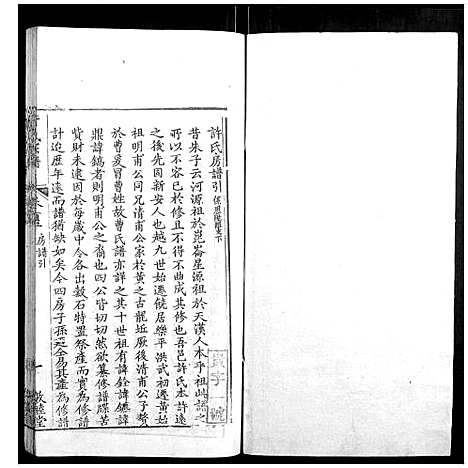 許氏房譜引
昔朱子云河源祖於崑崙星源祖於天漢人本乎祖此譜之
所以不容已於修且不得不曲成其修也吾邑許氏本許遠
之後先因新安人也越九世遷饒居樂平洪武初遷黃
祖明甫公同兄清甫公家於黃之古龍坵厥後清甫公子贅
於曹爰冒曹姓故曹氏譜亦詳之其十世祖有諱銓諱鏸諱
鼎諱鎬者則明甫公之裔也皆切切然欲纂修譜牒苦
貲財未逮因於每歲中令各出穀石特置祭產而實為修譜
計迨歷年遠而譜猶缺如矣今四房子孫
為修譜
房譜引
一
敦睦堂
號